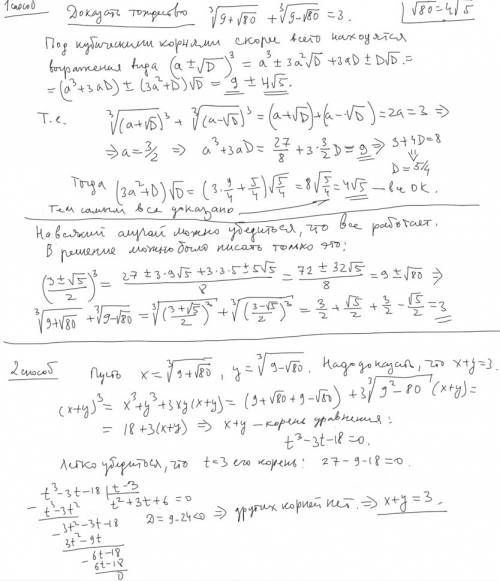 1 способ
Доказать тождество ∛(9+√80) + ∛(9-√80) = 3. | √80 = 4√5
Под кубическими корнями скорее всего находятся
выражения вида (a ± √D)³ = a³ ± 3a²√D + 3aD ± D√D =
= (a³+3aD) ± (3a²+D)√D = 9 ± 4√5.
Т.е. ∛(a+√D)³ + ∛(a-√D)³ = (a+√D)+(a-√D) = 2a = 3 ⇒
⇒ a = 3/2 ⇒ a³+3aD = 27/8 + 3·3/2 D = 9 ⇒ 3+4D=8
⇓
D = 5/4
Тогда (3a²+D)√D = (3·9/4 + 5/4)√(5/4) = 8√(5/4) = 4√5 — всё ОК.
Тем самым все доказано
На всякий случай можно убедиться, что все работает.
В решение можно было писать только это:
((3±√5)/2)³ = (27 ± 3·9√5 + 3·3·5 ± 5√5)/8 = (72 ± 32√5)/8 = 9 ± √80 ⇒
∛(9+√80) + ∛(9-√80) = ∛((3+√5)/2)³ + ∛((3-√5)/2)³ = 3/2 + √5/2 + 3/2 - √5/2 = 3
2 способ
Пусть x = ∛(9+√80), y = ∛(9-√80). Надо доказать, что x+y=3.
(x+y)³ = x³+y³+3xy(x+y) = (9+√80+9-√80) + 3∛(9²-80) (x+y) =
= 18+3(x+y) ⇒ x+y — корень уравнения:
t³-3t-18=0.
Легко убедиться, что t=3 его корень: 27-9-18=0.
t³-3t-18 | t-3
- t³-3t² t²+3t+6=0
3t²-3t-18 D=9-24<0 ⇒ других корней нет. ⇒ x+y=3.
- 3t²-9t
6t-18
- 6t-18
0